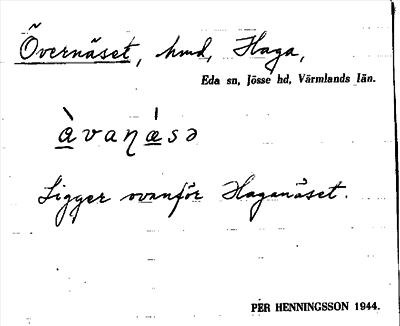 Övernäset, hmd, Haga,
Eda sn, Jösse hd, Värmlands län.
àvaɳǽsə
Ligger ovanför Haganäset.
PER HENNINGSSON 1944.